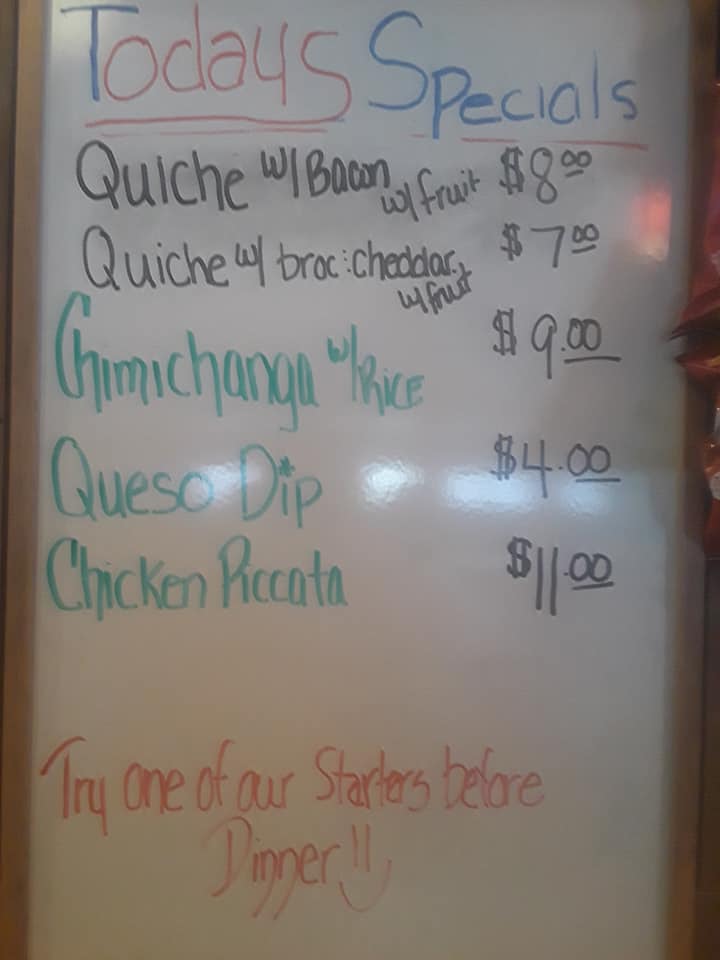 Todays Specials
Quiche w/ Bacon w/ fruit $8.00
Quiche w/ broc: cheddar. w/ fruit $7.00
Chimichanga w/ Rice $9.00
Queso Dip $4.00
Chicken Piccata $11.00
Try one of our Starters before
Dinner!!